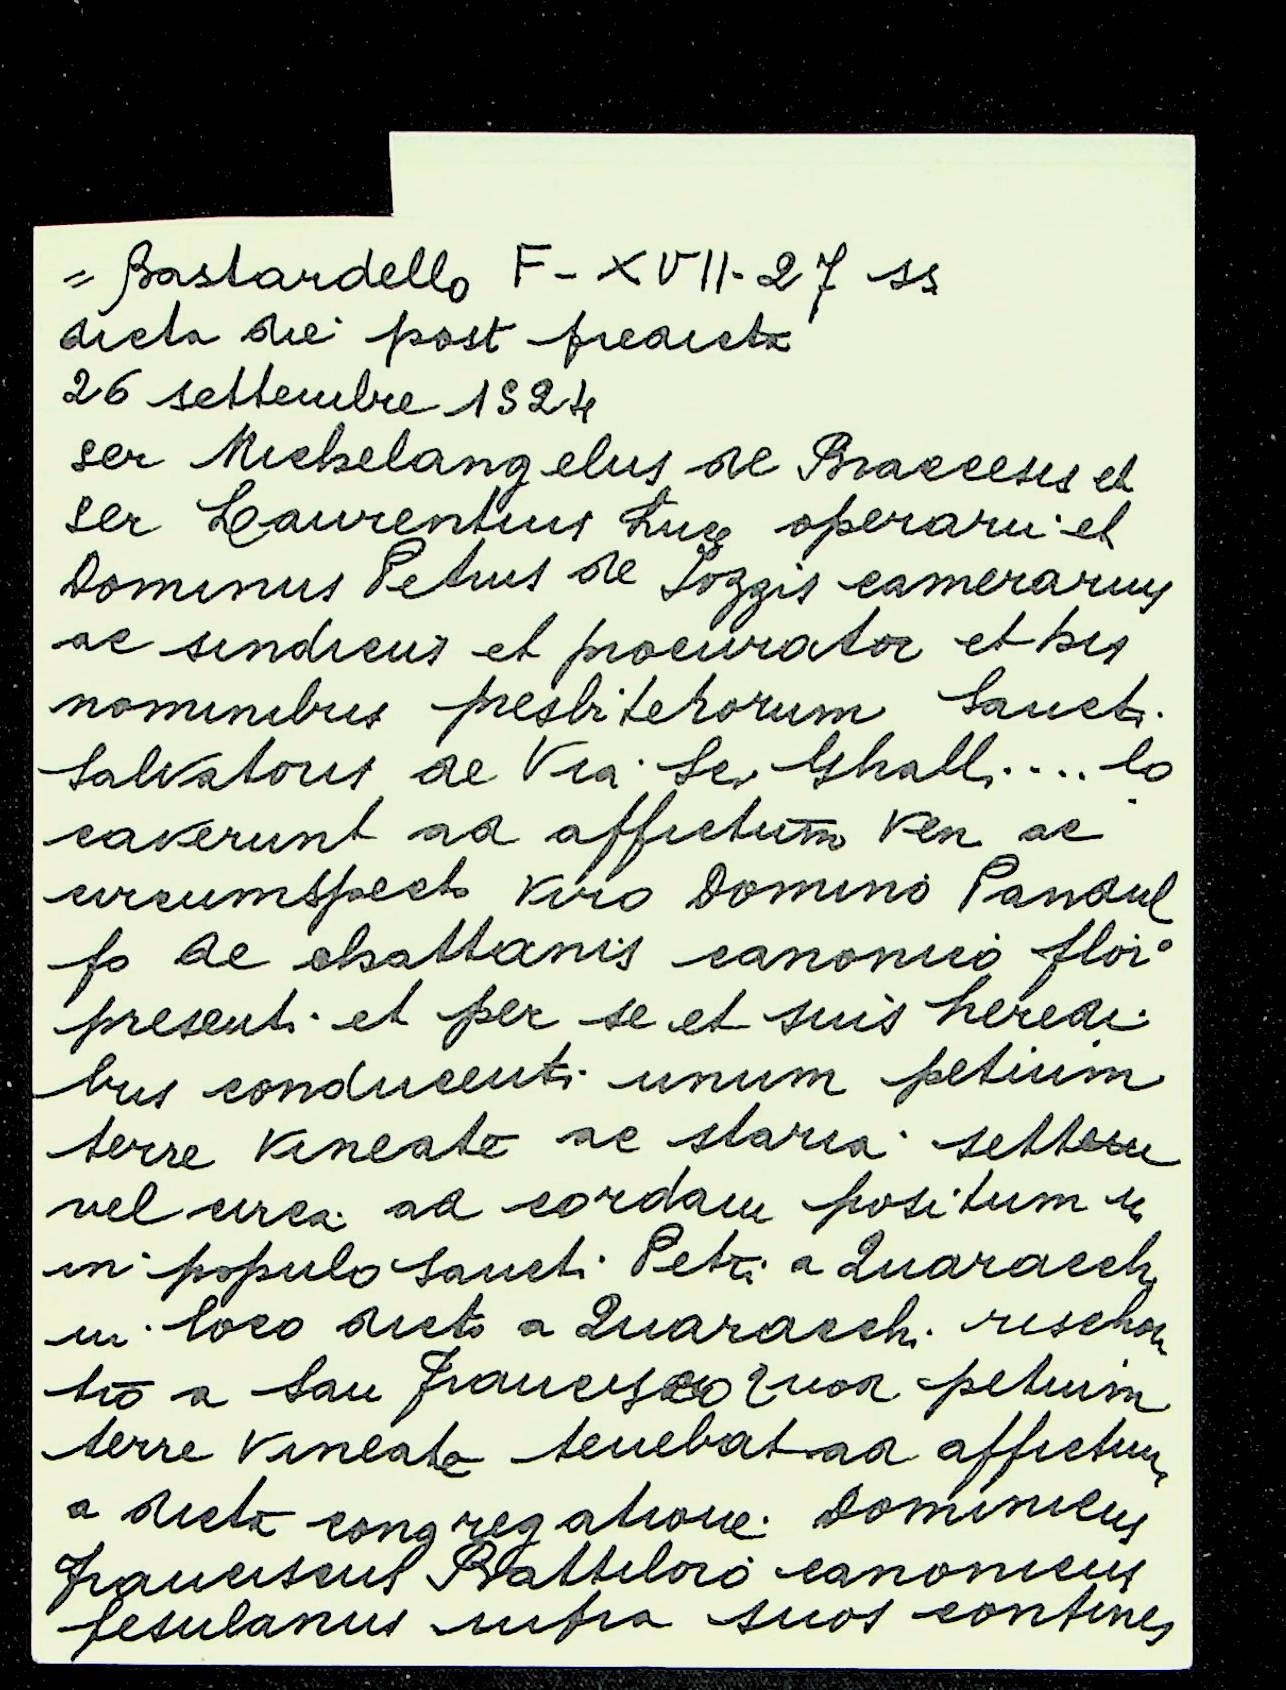 = Bastardello F-XVII-27 ss
dicta die post predicta
26 settembre 1524
ser Michelangelus de Braccesis et
ser Laurentius Luce operarii et
Dominus Petrus de Pozzis camerarius
ac sindicus et procurator et his
nominibus presbiterorum Sancti
Salvatoris de Via Sci Ghalli .... lo
caverunt ad affictum ven. ac
circumspecto viro Domino Pandul
fo de chattanis canonico flor°
presenti et per se et suis heredi
bus conducenti unum petium
terre vineate ac staria settem
vel circa ad cordam positum
in populo Sancti Petri a Quaracchi
in loco dicto a Quaracchi
a San Francesco quod petium
terre vineate tenebat ad affictum
a dicta congregatione Dominicus
Franciscus Battiloro canonicus
fesulanus infra suos confines